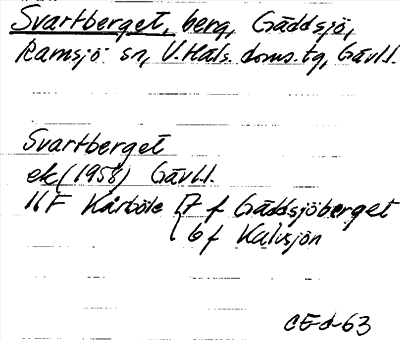 Svartberget, berg, Gäddsjö,
Ramsjö sn, V. Häls. doms. tg, Gävl.l.
Svartberget
ek (1958) Gävl.l.
16F Kårböle [7 f Gäddsjöberget
[6 f Kalvsjön
CEd-63